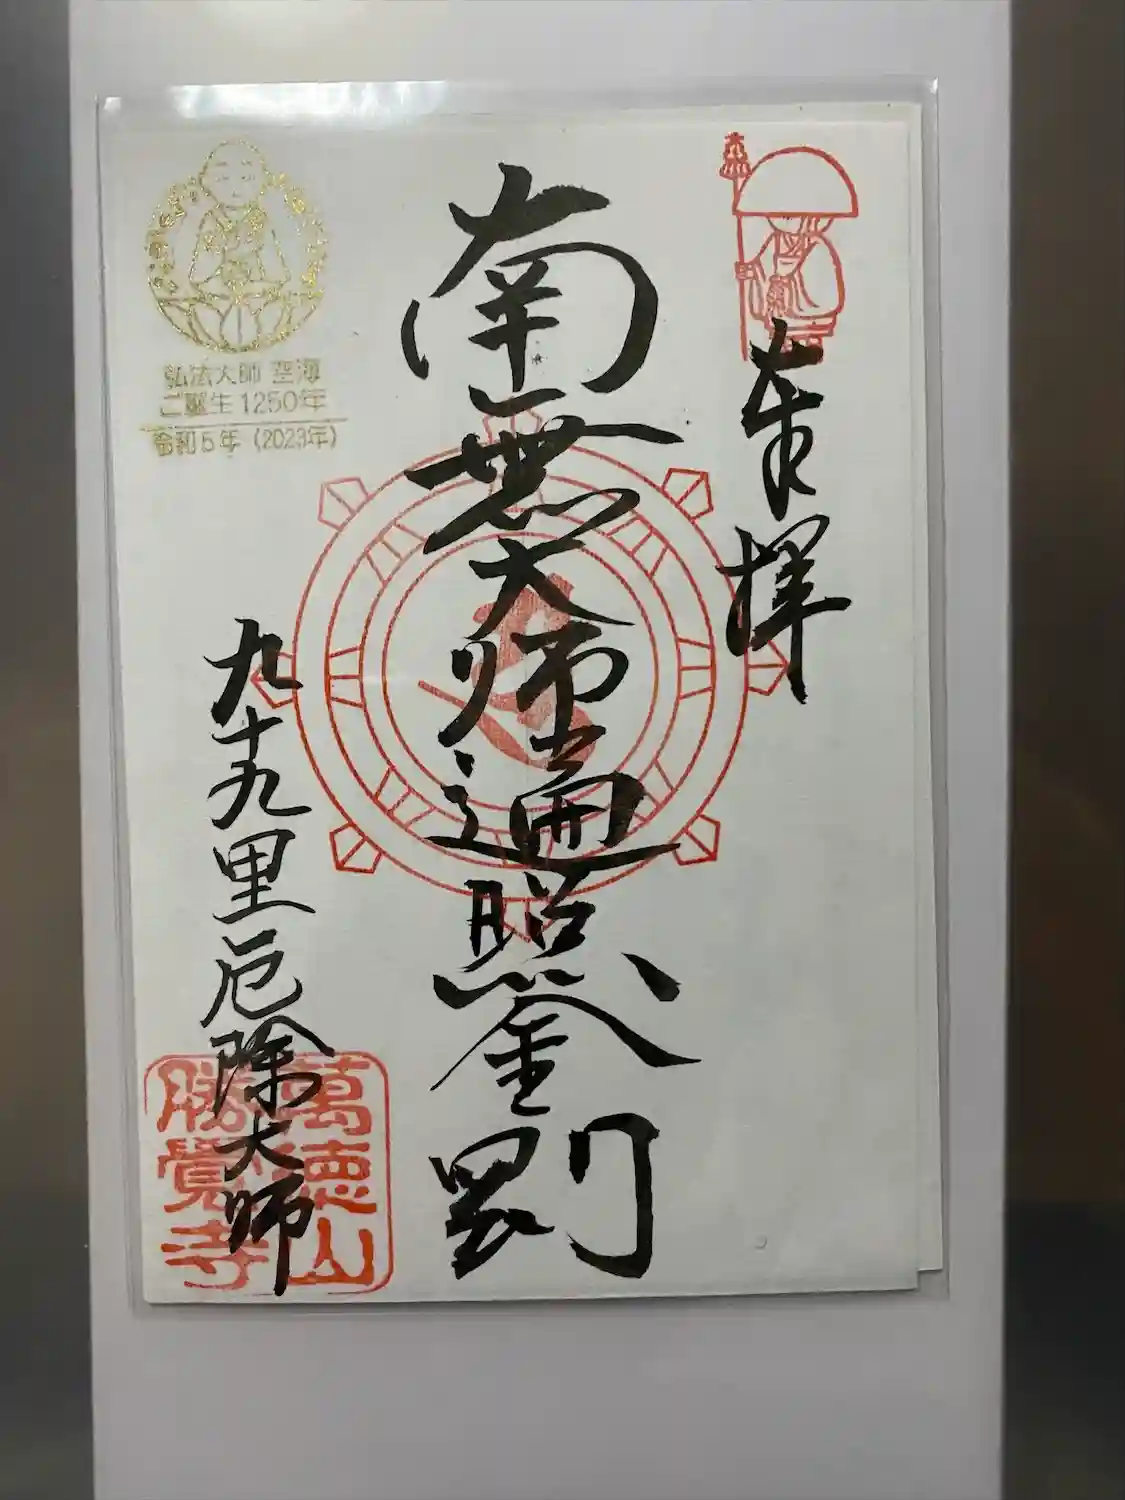 奉拝
南無大師遍照金剛
弘法大師 空海
ご誕生1250年
令和5年（2023年）
九十九里厄除大師
萬徳山
勝覺寺